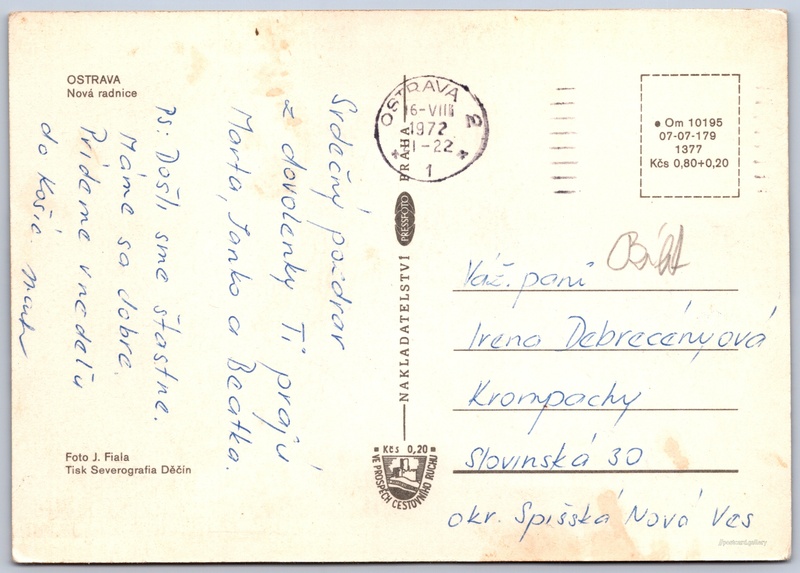 OSTRAVA
Nová radnice
Srdečný pozdrav
z dovolenky Ti prajú
Marta, Janko a Beatka.
Ps: Došli sme štastne.
Máme sa dobre.
Prídeme v nedelu
do Košíc.
Foto J. Fiala
Tisk Severografia Děčín
OSTRAVA 2
16-VIII
1972
1
NAKLADATELSTVÍ PRESSFOTO PRAHA
Kčs 0,20
VE PROSPĚCH CESTOVNÍHO RUCHU
Om 10195
07-07-179
1377
Kčs 0,80+0,20
Váž. pani
Irena Debrecényová
Krompachy
Slovinská 30
okr. Spišská Nová Ves